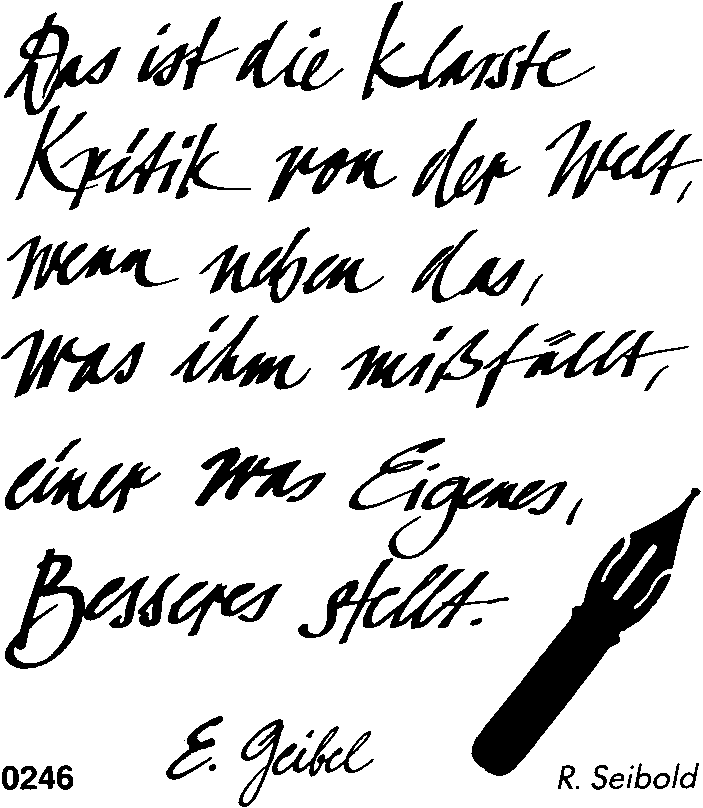 Das ist die klarste
Kritik von der Welt,
wenn neben das,
was ihm mißfällt,
einer was Eigenes,
Besseres stellt.
E. Geibel
0246
R. Seibold